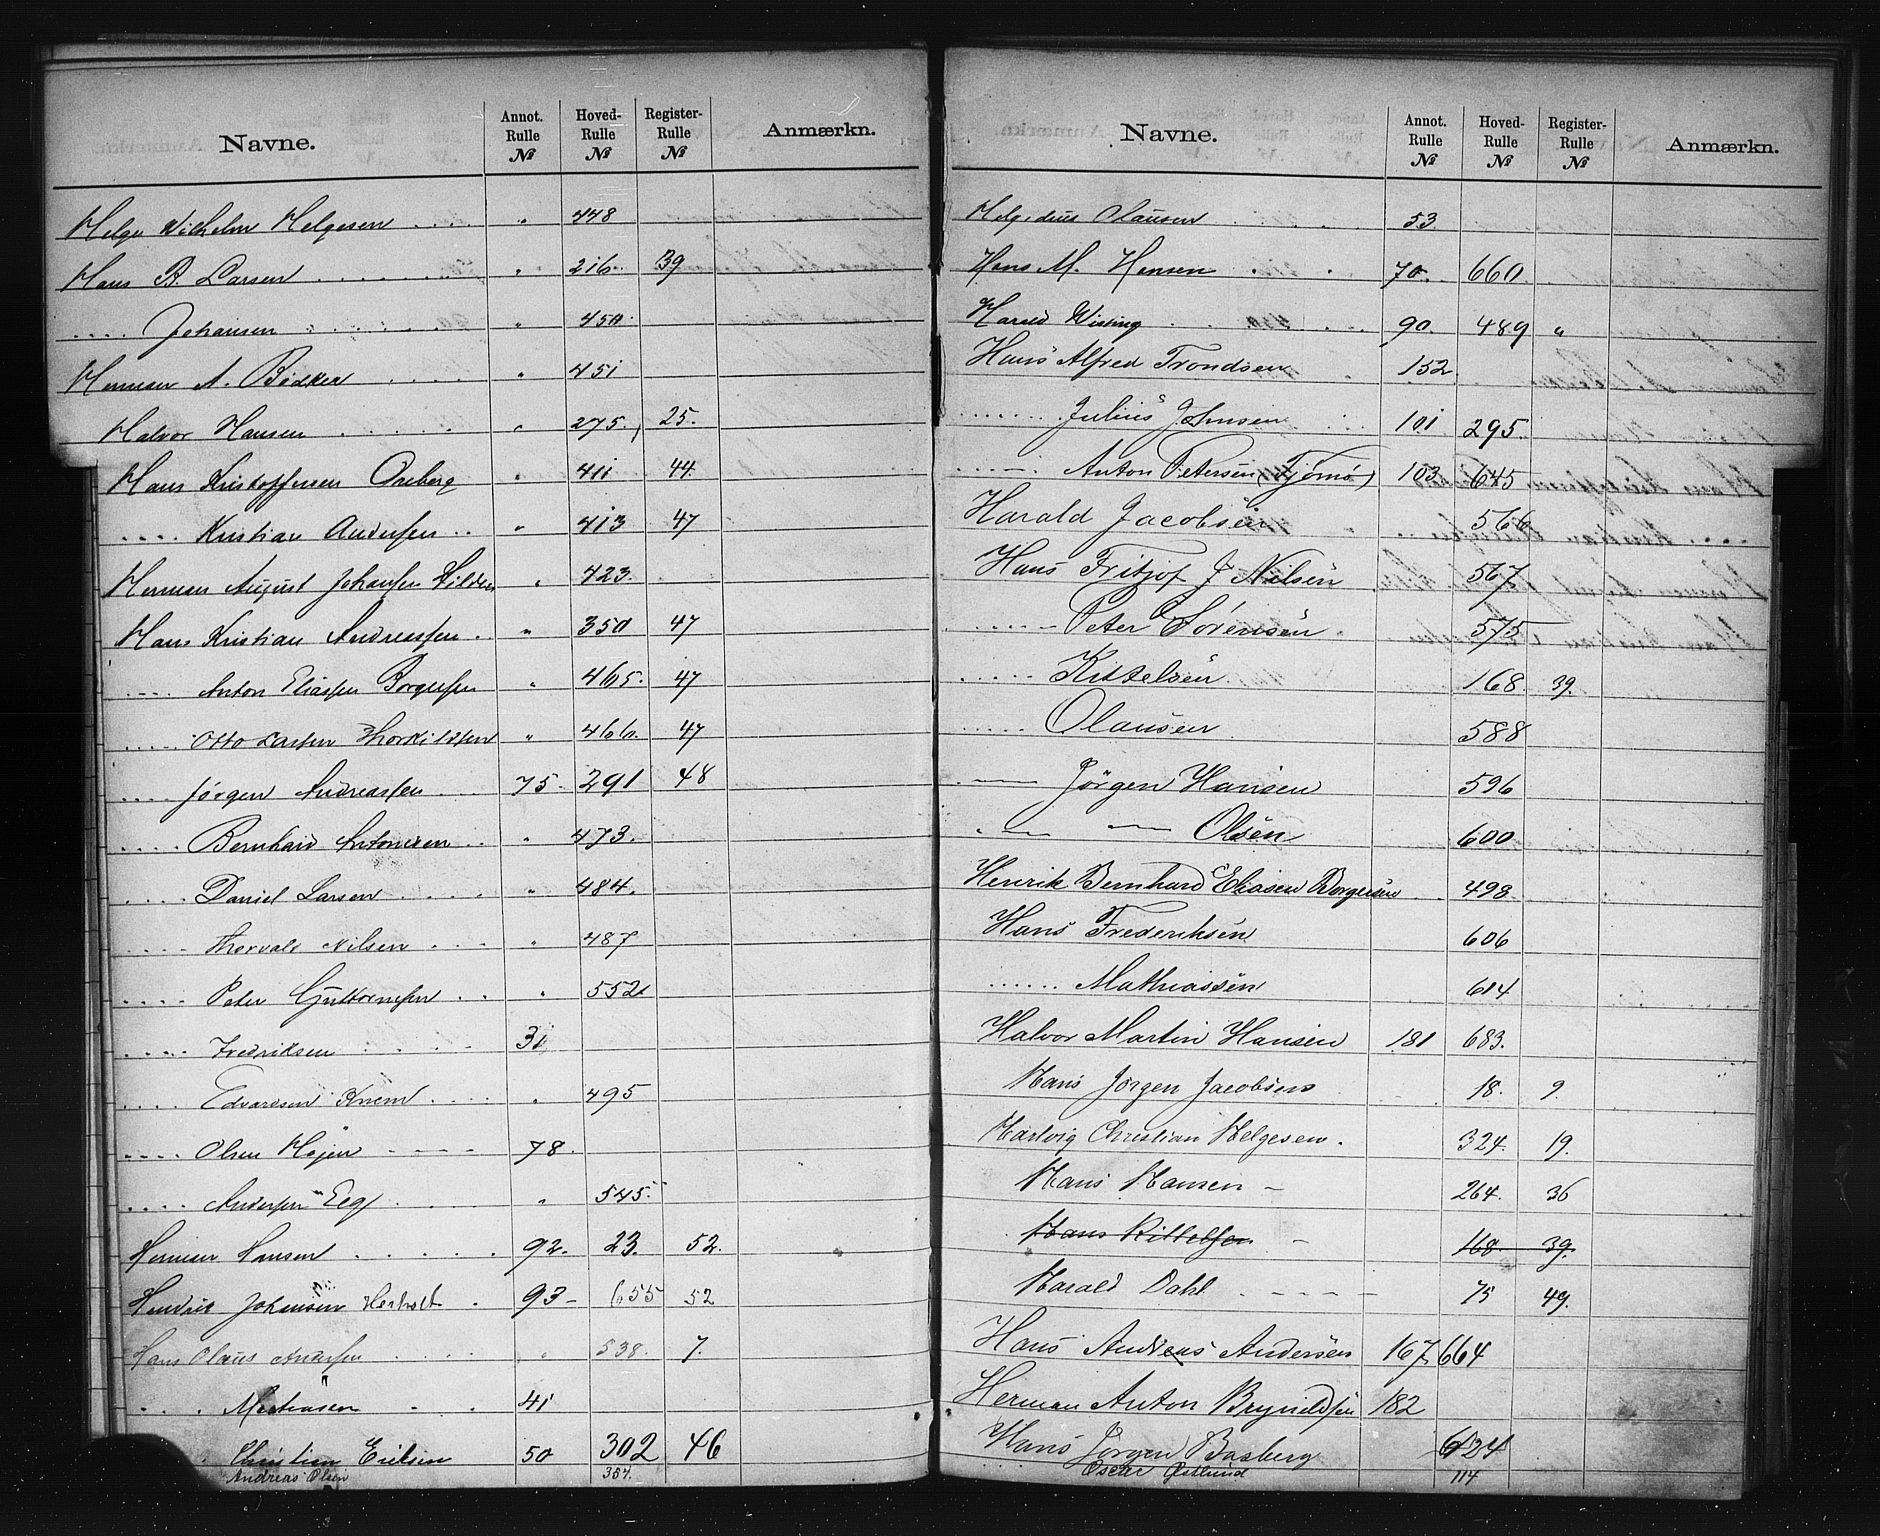 Navne. Annot. Rulle № Hoved-Rulle № Register-Rulle № Anmærkn.
Helge Wilhelm Helgesen .... " 448
Hans B. Larsen ..... " 216. 39
.... Johansen ..... " 450.
Herman A. Bödker .... " 451
Halvor Hansen ..... " 275. 25.
Hans Kristoffersen Oreberg " 411 44.
.... Kristian Andersen .. " 413 47
Herman August Johansen " 423.
Hans Kristian Andreassen . " 350 47
.... Anton Eliassen Borgersen " 465. 47
.... Otto Larsen Thorkildsen " 466. 47
.... Jørgen Andreassen 75. 291 48
.... Bernhard Antonsen .. " 473.
.... Daniel Larsen .... " 484.
.... Thorvald Nilsen ... " 487
.... Peter Guttormsen .. " 552
.... Fredriksen .... 31
.... Edvardsen Knem ... " 495
.... Olsen Højen ---- 78.
.... Andersen Eeg . " 545.
Herman Hansen ..... 92. 23. 52.
Hendrik Johansen Herholt . 93- 655 52
Hans Olaus Andersen .... " 538. 7.
... Mathiasen . . 41
Christian Eriksen 50 302 46
Andreas Olsen 357.
Navne. Annot. Rulle № Hoved-Rulle № Register-Rulle № Anmærkn.
Helgedius Olausen .... 53
Hans M. Hansen . . 70. 660.
Harald Wisting .... 90. 489 "
Hans Alfred Trondsen . 152
....... Julius Johnsen ... 101 295.
..... Anton Petersen (Tjømø) 103 645
Harald Jacobsen 566
Hans Fritjof J Nilsen 567
...... Peter Sørensen . 575
..... Kittelsen 168 39.
..... Olausen 588
—— Jørgen Hansen 596
—— —— Olsen 600
Henrik Bernhard Eliasen Borgersen .. 498.
Hans Frederiksen 606
...... Mathiassen 614
Halvor Martin Hansen 181 683.
Hans Jørgen Jacobsen 18. 9.
Hartvig Christian Helgesen . 324. 19.
Hans Hansen - 264. 36
Hans Kittelsen - 168. 39.
Harald Dahl ---- 75 49.
Hans Andreas Andersen 167 664
Herman Anton Brynildsen 182
Hans Jørgen Basberg 624
Oscar Østlund 114